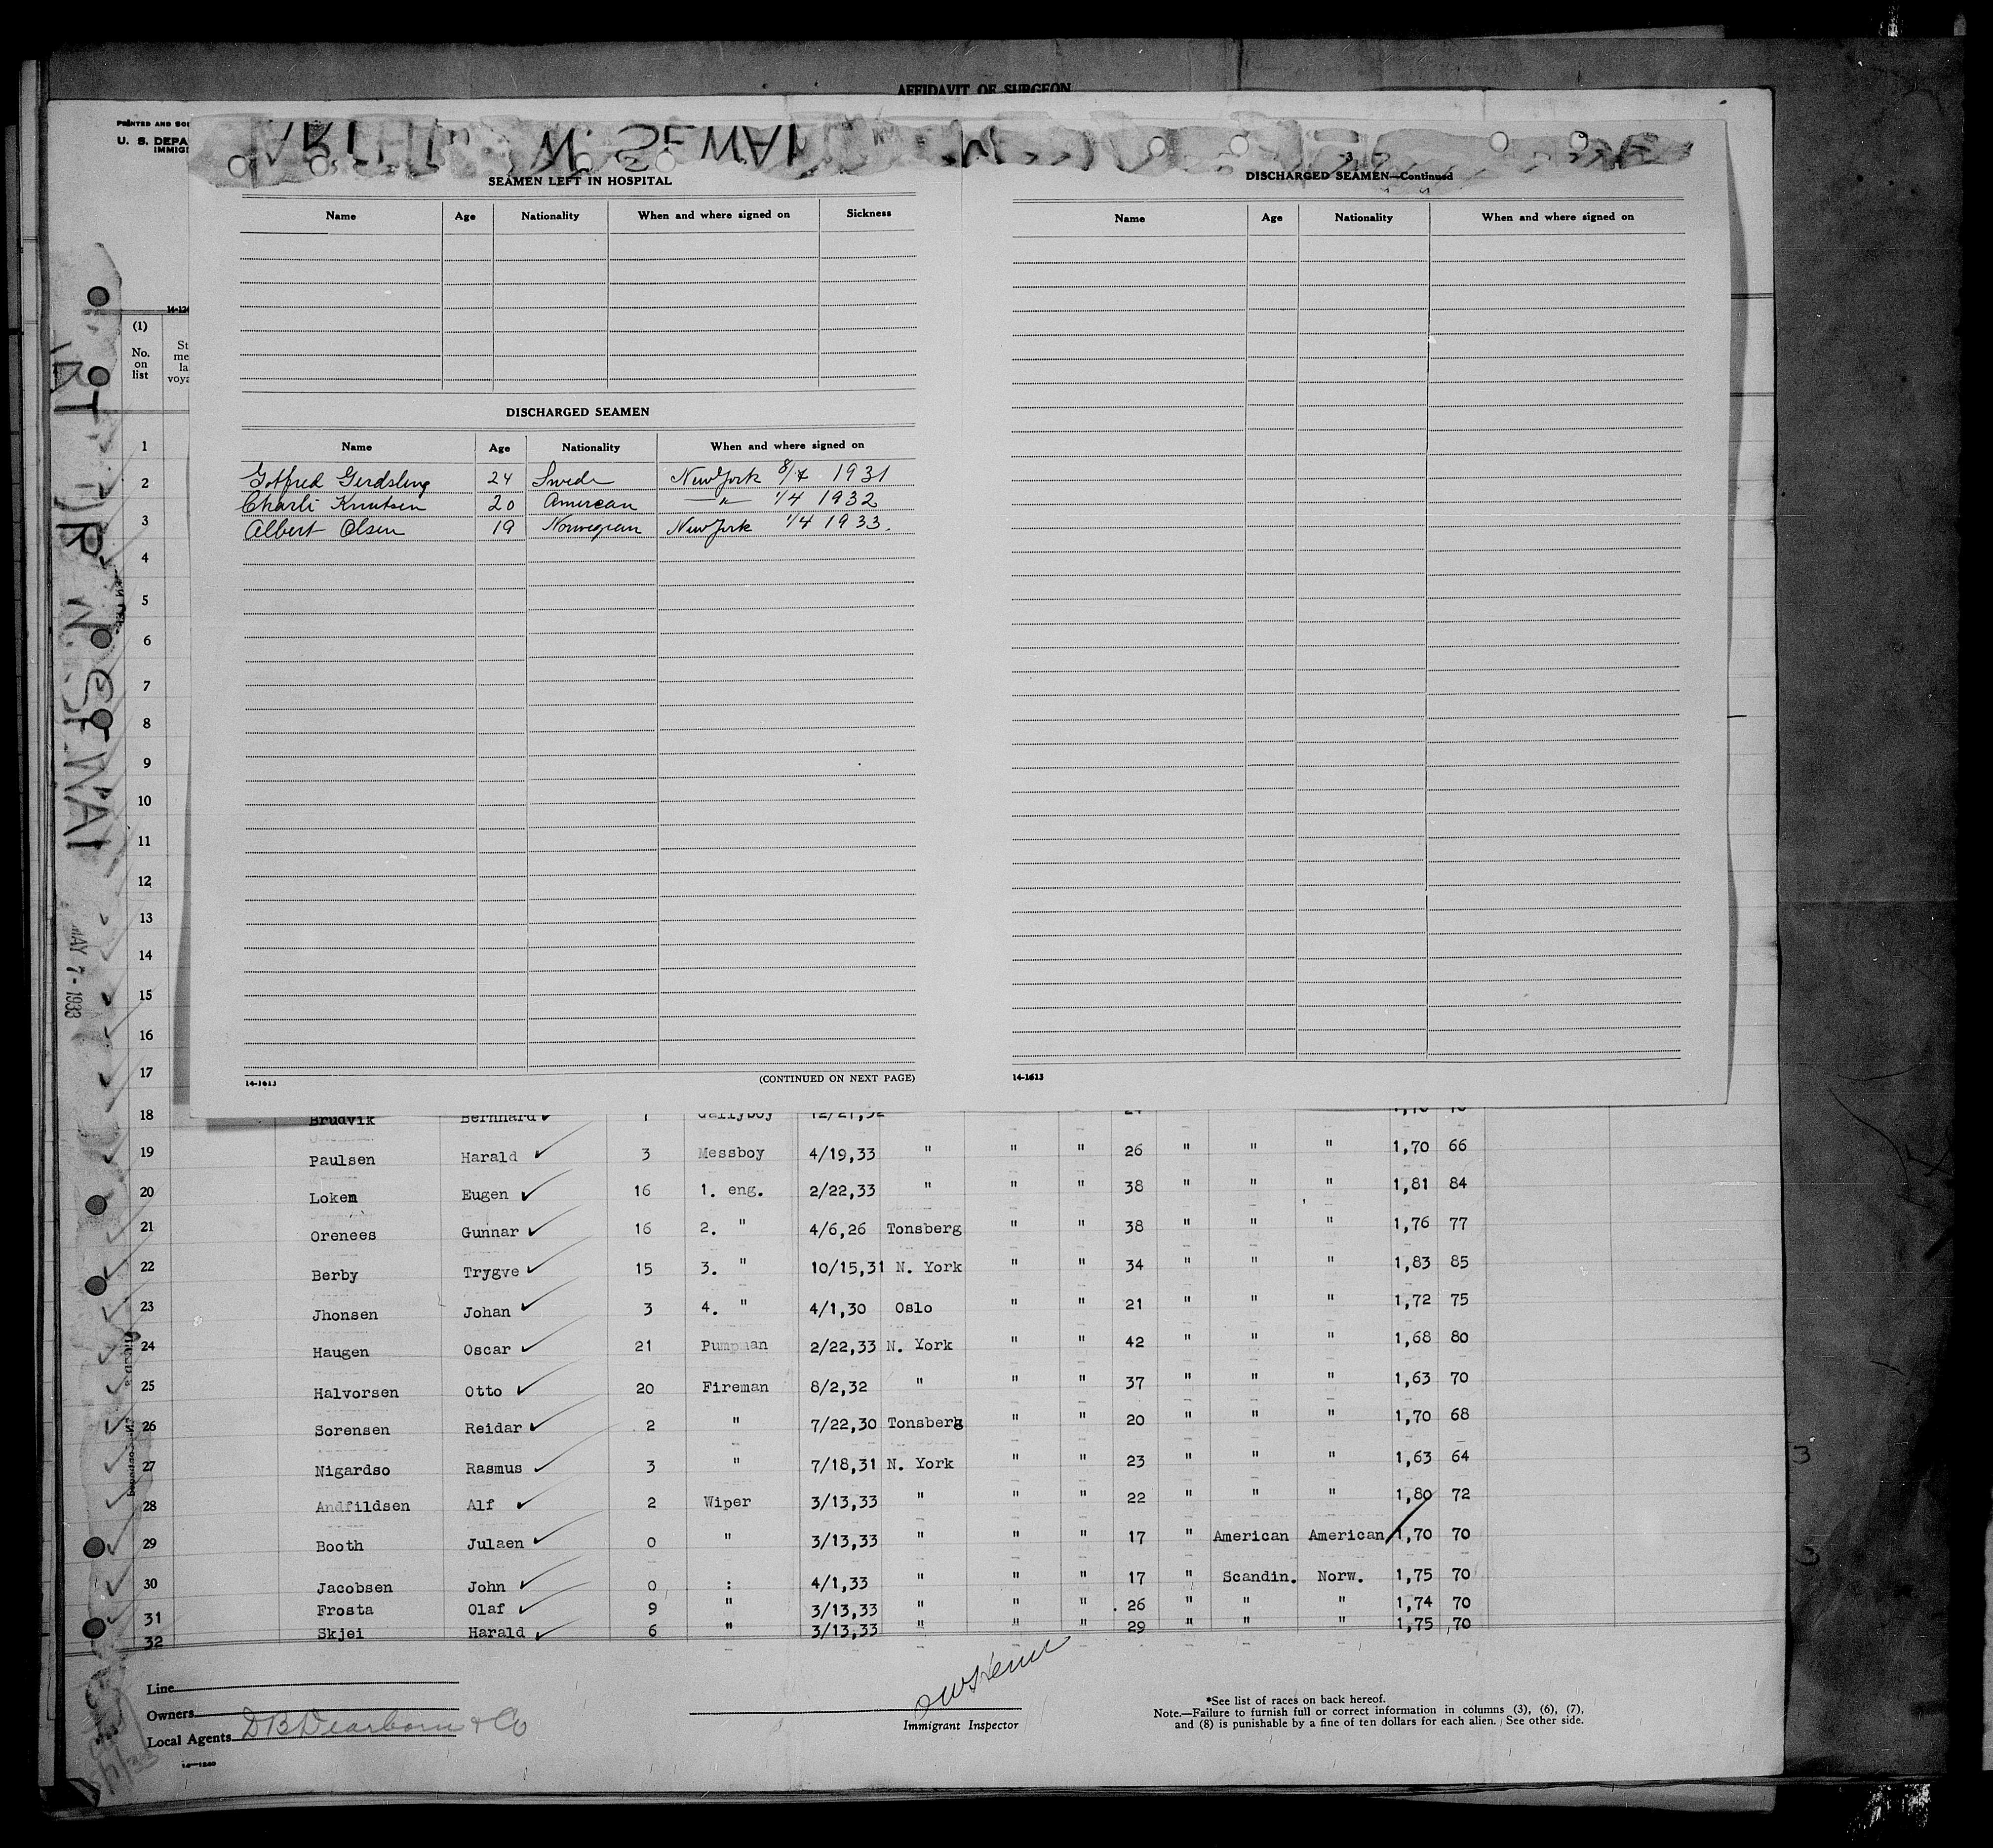 AFFIDAVIT OF SURGEON
PRINTED AND
U. S. DEPA
IMMIG
ARTHUR W. SEWALL
SEAMEN LEFT IN HOSPITAL
Name Age Nationality When and where signed on Sickness
DISCHARGED SEAMEN
Name Age Nationality When and where signed on
Gotfred Gerdsling 24 Swede New York 8/7 1931
Charli Knutsen 20 American " 1/4 1932
Albert Olsen 19 Norwegian New York 1/4 1933.
14-1613 (CONTINUED ON NEXT PAGE)
DISCHARGED SEAMEN—Continued
Name Age Nationality When and where signed on
14-1613
(1)
No. on list
1
2
3
4
5
6
7
8
9
10
11
12
13
14
15
16
17
MAY 7 - 1933
18 Brudvik Bernhard 1 Gallyboy 12/21,32
19 Paulsen Harald 3 Messboy 4/19,33 " " " 26 " " " 1,70 66
20 Loken Eugen 16 1. eng. 2/22,33 " " " 38 " " " 1,81 84
21 Orenees Gunnar 16 2. " 4/6,26 Tonsberg " " 38 " " " 1,76 77
22 Berby Trygve 15 3. " 10/15,31 N. York " " 34 " " " 1,83 85
23 Jhonsen Johan 3 4. " 4/1,30 Oslo " " 21 " " " 1,72 75
24 Haugen Oscar 21 Pumpman 2/22,33 N. York " " 42 " " " 1,68 80
25 Halvorsen Otto 20 Fireman 8/2,32 " " " 37 " " " 1,63 70
26 Sorensen Reidar 2 " 7/22,30 Tonsberg " " 20 " " " 1,70 68
27 Nigardso Rasmus 3 " 7/18,31 N. York " " 23 " " " 1,63 64
28 Andfildsen Alf 2 Wiper 3/13,33 " " " 22 " " " 1,80 72
29 Booth Julaen 0 " 3/13,33 " " " 17 " American American 1,70 70
30 Jacobsen John 0 : 4/1,33 " " " 17 " Scandin. Norw. 1,75 70
31 Frosta Olaf 9 " 3/13,33 " " " 26 " " " 1,74 70
32 Skjei Harald 6 " 3/13,33 " " " 29 " " " 1,75 70
Line
Owners
Local Agents D B Dearborn & Co
Immigrant Inspector
*See list of races on back hereof.
Note.—Failure to furnish full or correct information in columns (3), (6), (7),
and (8) is punishable by a fine of ten dollars for each alien. See other side.
14—1240